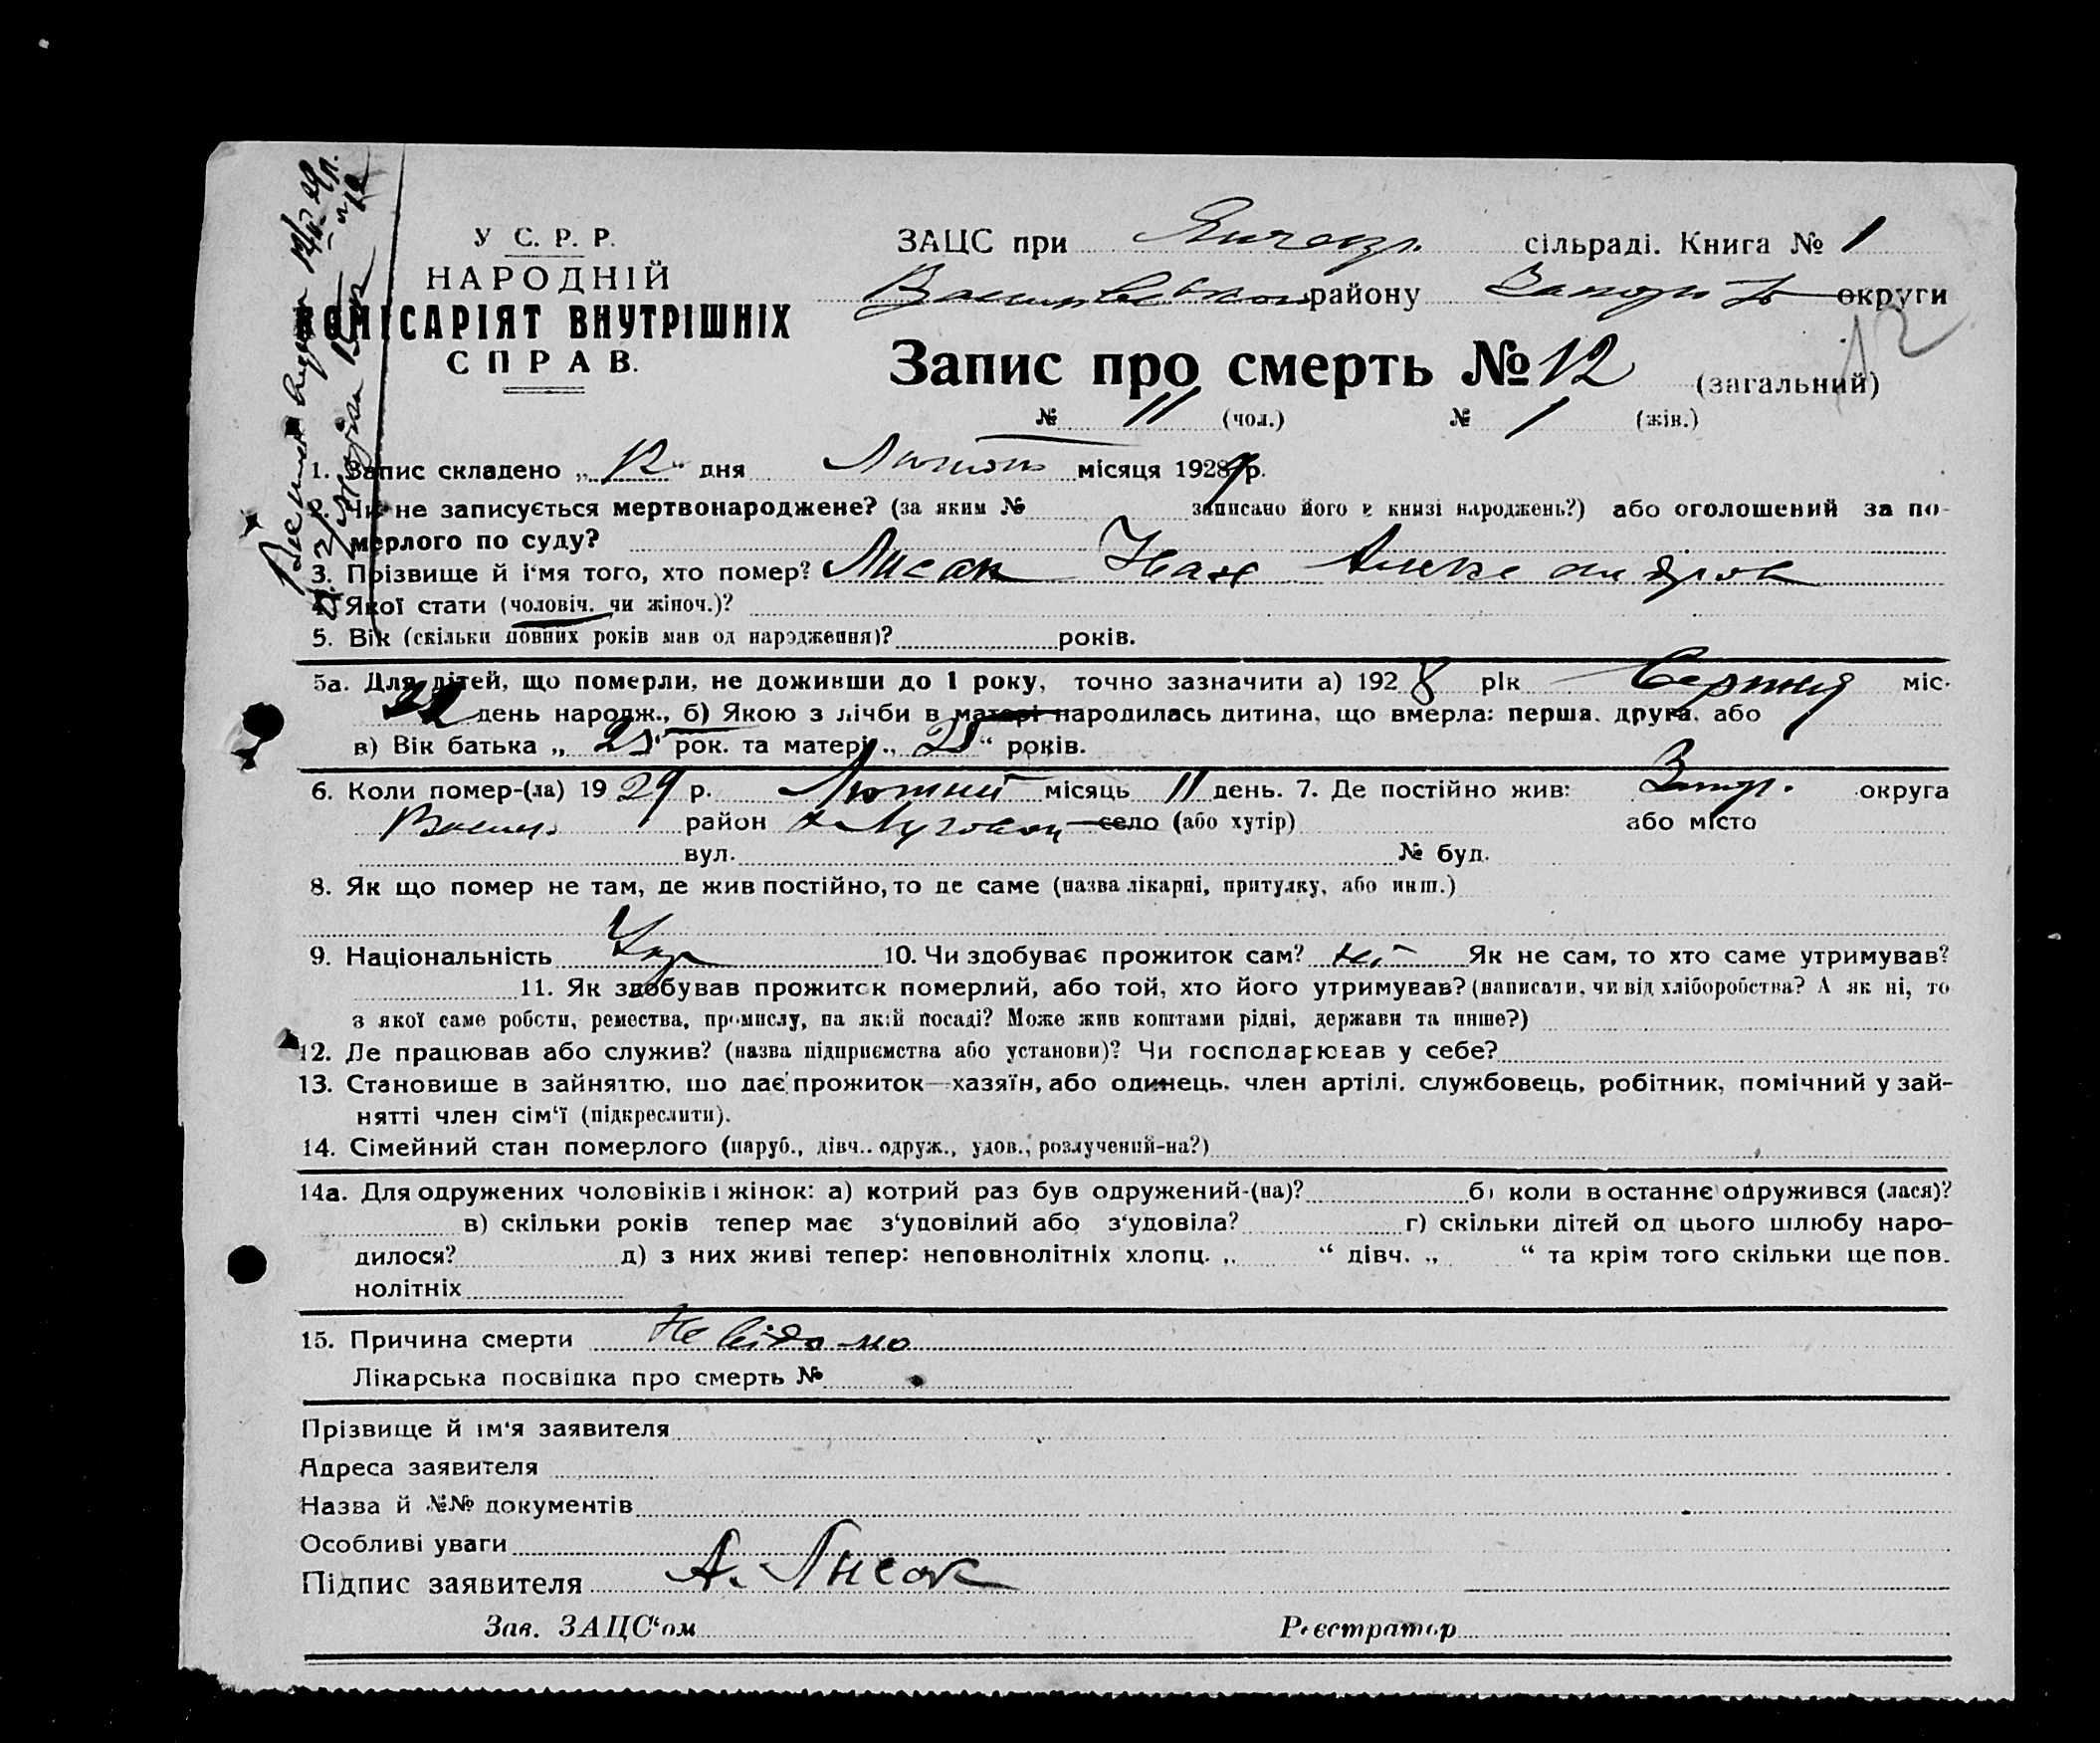 У С. Р. Р.
НАРОДНІЙ
КОМІСАРІЯТ ВНУТРІШНІХ
СПРАВ.
ЗАЦС при сільраді. Книга № 1
району округи
Запис про смерть № 12 (загальний)
12
№ 11 (чол.) № 1 (жін.)
1. Запис складено „ 12 “ дня місяця 1929 р.
2. Чи не записується мертвонароджене? (за яким № записано його в книзі народжень?) або оголошений за по-
мерлого по суду?
3. Прізвище й ім'я того, хто помер? Лисак Іван
4. Якої стати (чоловіч. чи жіноч.)?
5. Вік (скільки повних років мав од народження)? років.
5а. Для дітей, що померли, не доживши до 1 року, точно зазначити а) 1928 рік Серпня міс.
день народж., б) Якою з лічби в матері народилась дитина, що вмерла: перша, друга, або
в) Вік батька „ 25 рок. та матері „ 25 “ років.
6. Коли помер-(ла) 1929 р. Лютий місяць 11 день. 7. Де постійно жив: Запор. округа
Васил. район село (або хутір) або місто
вул. № буд.
8. Як що помер не там, де жив постійно, то де саме (назва лікарні, притулку, або инш.)
9. Національність Укр 10. Чи здобуває прожиток сам? ні Як не сам, то хто саме утримував?
11. Як здобував прожиток померлий, або той, хто його утримував? (написати, чи від хліборобства? А як ні, то
з якої саме роботи, ремества, промислу, на якій посаді? Може жив коштами рідні, держави та инше?)
12. Де працював або служив? (назва підприємства або установи)? Чи господарював у себе?
13. Становище в зайняттю, що дає прожиток—хазяїн, або одинець, член артілі, службовець, робітник, помічний у зай-
нятті член сім‘ї (підкреслити).
14. Сімейний стан померлого (паруб., дівч.. одруж., удов., розлучений-на?)
14а. Для одружених чоловіків і жінок: а) котрий раз був одружений-(на)? б) коли в останнє одружився (лася)?
в) скільки років тепер має з‘удовілий або з‘удовіла? г) скільки дітей од цього шлюбу наро-
дилося? д) з них живі тепер: неповнолітніх хлопц. „ “ дівч. „ “ та крім того скільки ще пов.
нолітніх
15. Причина смерти Невідомо
Лікарська посвідка про смерть №
Прізвище й ім‘я заявителя
Адреса заявителя
Назва й №№ документів
Особливі уваги
Підпис заявителя А. Лисак
Зав. ЗАЦС‘ом Реєстратор